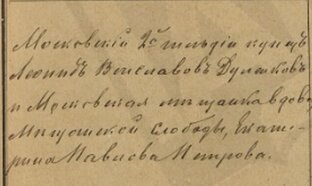 Московскій 2й гильдіи купецъ
Леонидъ Вячеславовъ
и Московская мѣщанка вдова
Мѣщанской слободы, Екате-
рина Павлова Петрова.